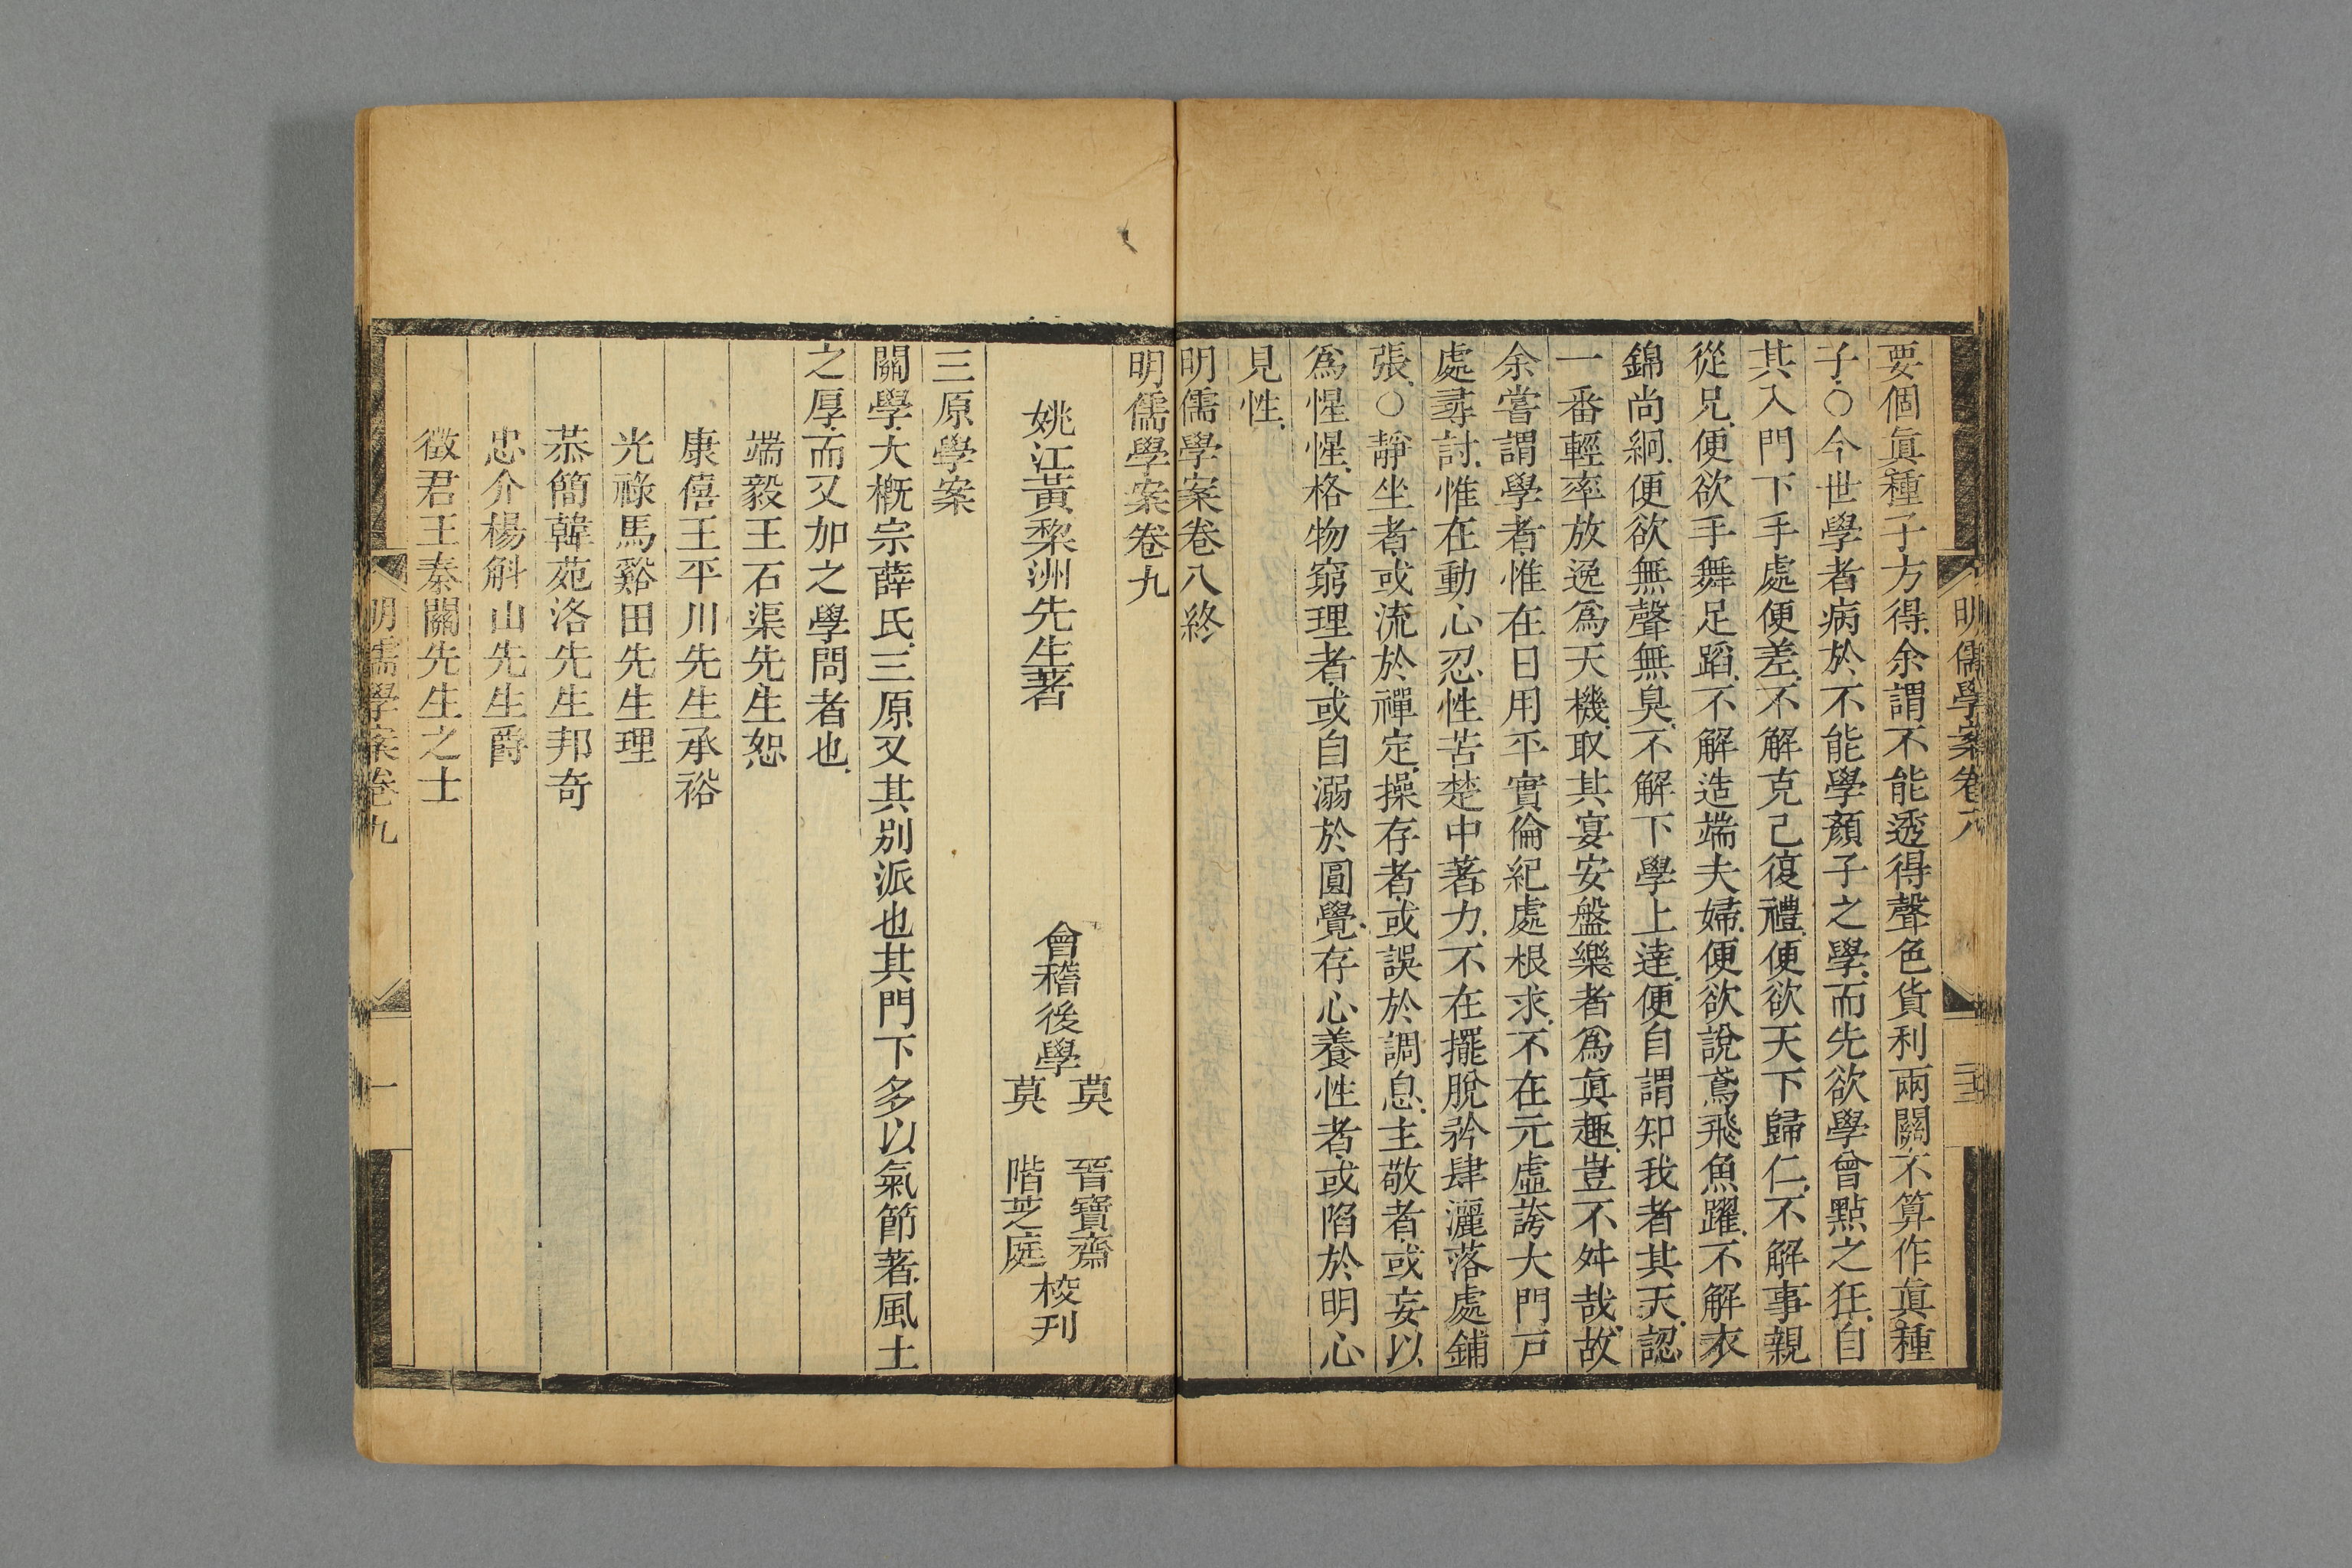 明儒學案卷八
要個眞種子方得余謂不能透得聲色貨利兩關不算作眞種
子○今世學者病於不能學顏子之學而先欲學曾點之狂自
其入門下手處便差不解克己復禮便欲天下歸仁不解事親
從兄便欲手舞足蹈不解造端夫婦便欲說鳶飛魚躍不解衣
錦尚絅便欲無聲無臭不解下學上達便自謂知我者其天認
一番輕率放逸爲天機取其宴安盤樂者爲眞趣豈不舛哉故
余嘗謂學者惟在日用平實倫紀處根求不在元虛誇大門戸
處尋討惟在動心忍性苦楚中著力不在擺脫矜肆灑落處鋪
張○靜坐者或流於禪定操存者或誤於調息主敬者或妄以
爲惺惺格物窮理者或自溺於圓覺存心養性者或陷於明心
見性
明儒學案卷八終
明儒學案卷九
姚江黃棃洲先生著
會稽後學
莫 晉寶齋
莫 階芝庭
校刊
三原學案
關學大槪宗薛氏三原又其別派也其門下多以氣節著風土
之厚而又加之學問者也
端毅王石渠先生恕
康僖王平川先生承裕
光祿馬谿田先生理
恭簡韓苑洛先生邦奇
忠介楊斛山先生爵
徵君王秦關先生之士
明儒學案卷九
一